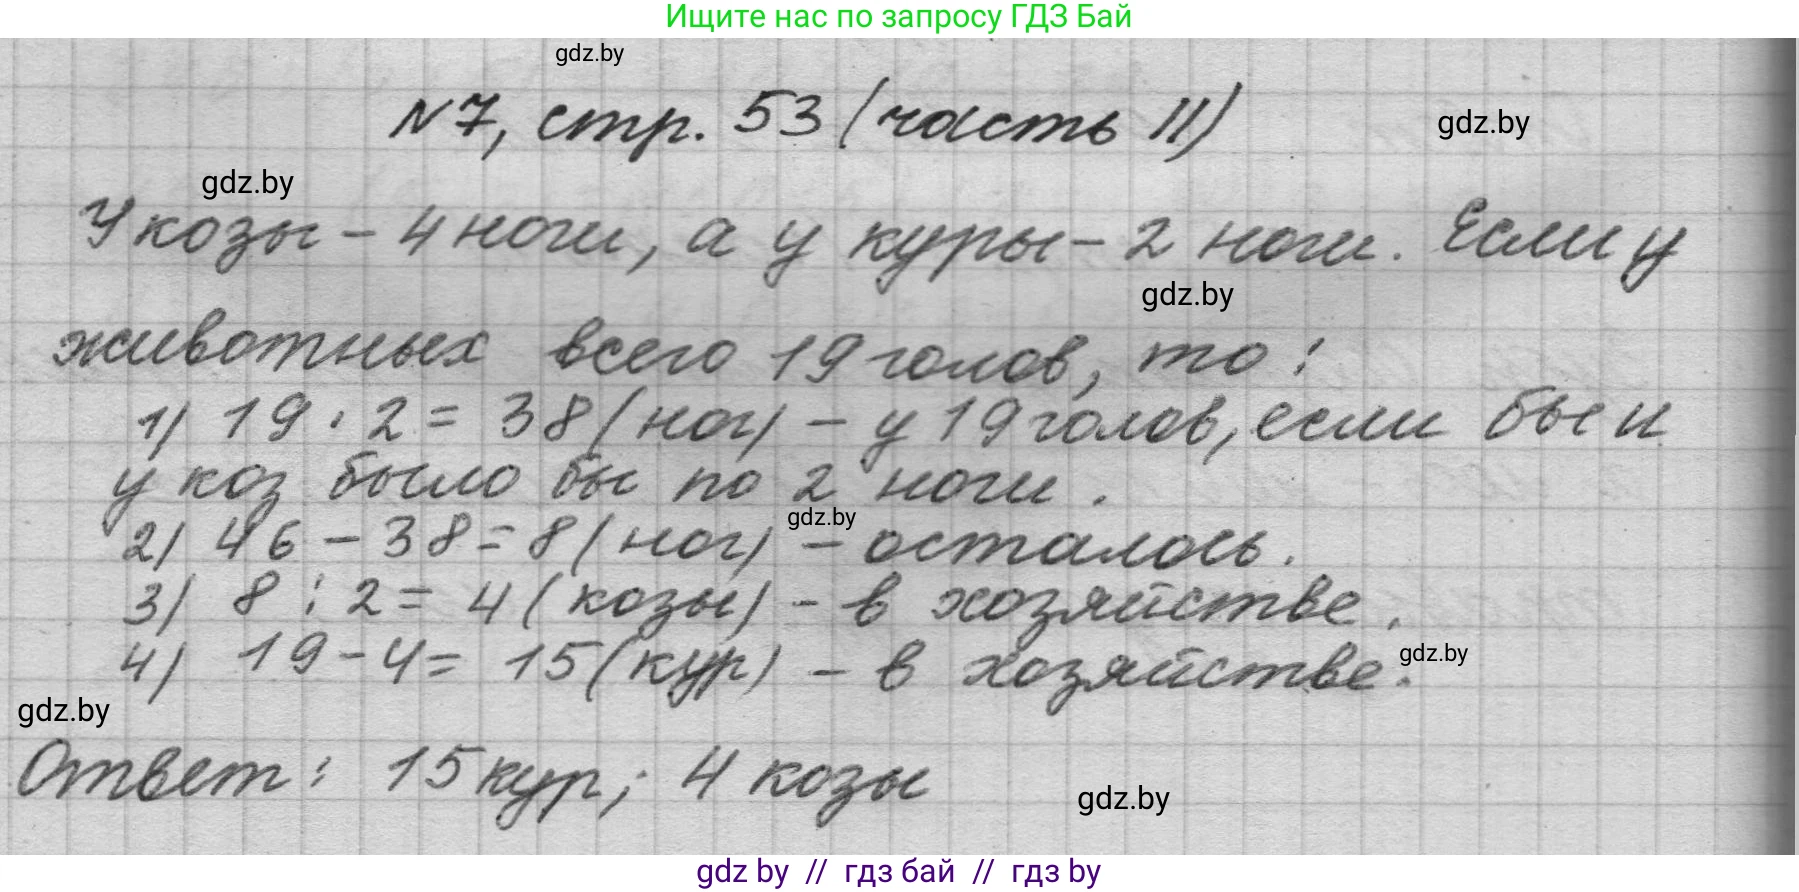 Ищите нас по запросу ГДЗ Бай
gdz.by
N7, стр. 53 (часть II)
gdz.by
gdz.by
У козы - 4 ноги, а у куры - 2 ноги. Если у
gdz.by
животных всего 19 голов, то:
1) 19 · 2 = 38 (ног) - у 19 голов, если бы и
у коз было бы по 2 ноги.
gdz.by
2) 46 - 38 = 8 (ног) - осталось.
3) 8 : 2 = 4 (козы) - в хозяйстве.
4) 19 - 4 = 15 (кур) - в хозяйстве.
gdz.by
gdz.by
Ответ: 15 кур; 4 козы
gdz.by
gdz by // гдз бай // гдз by